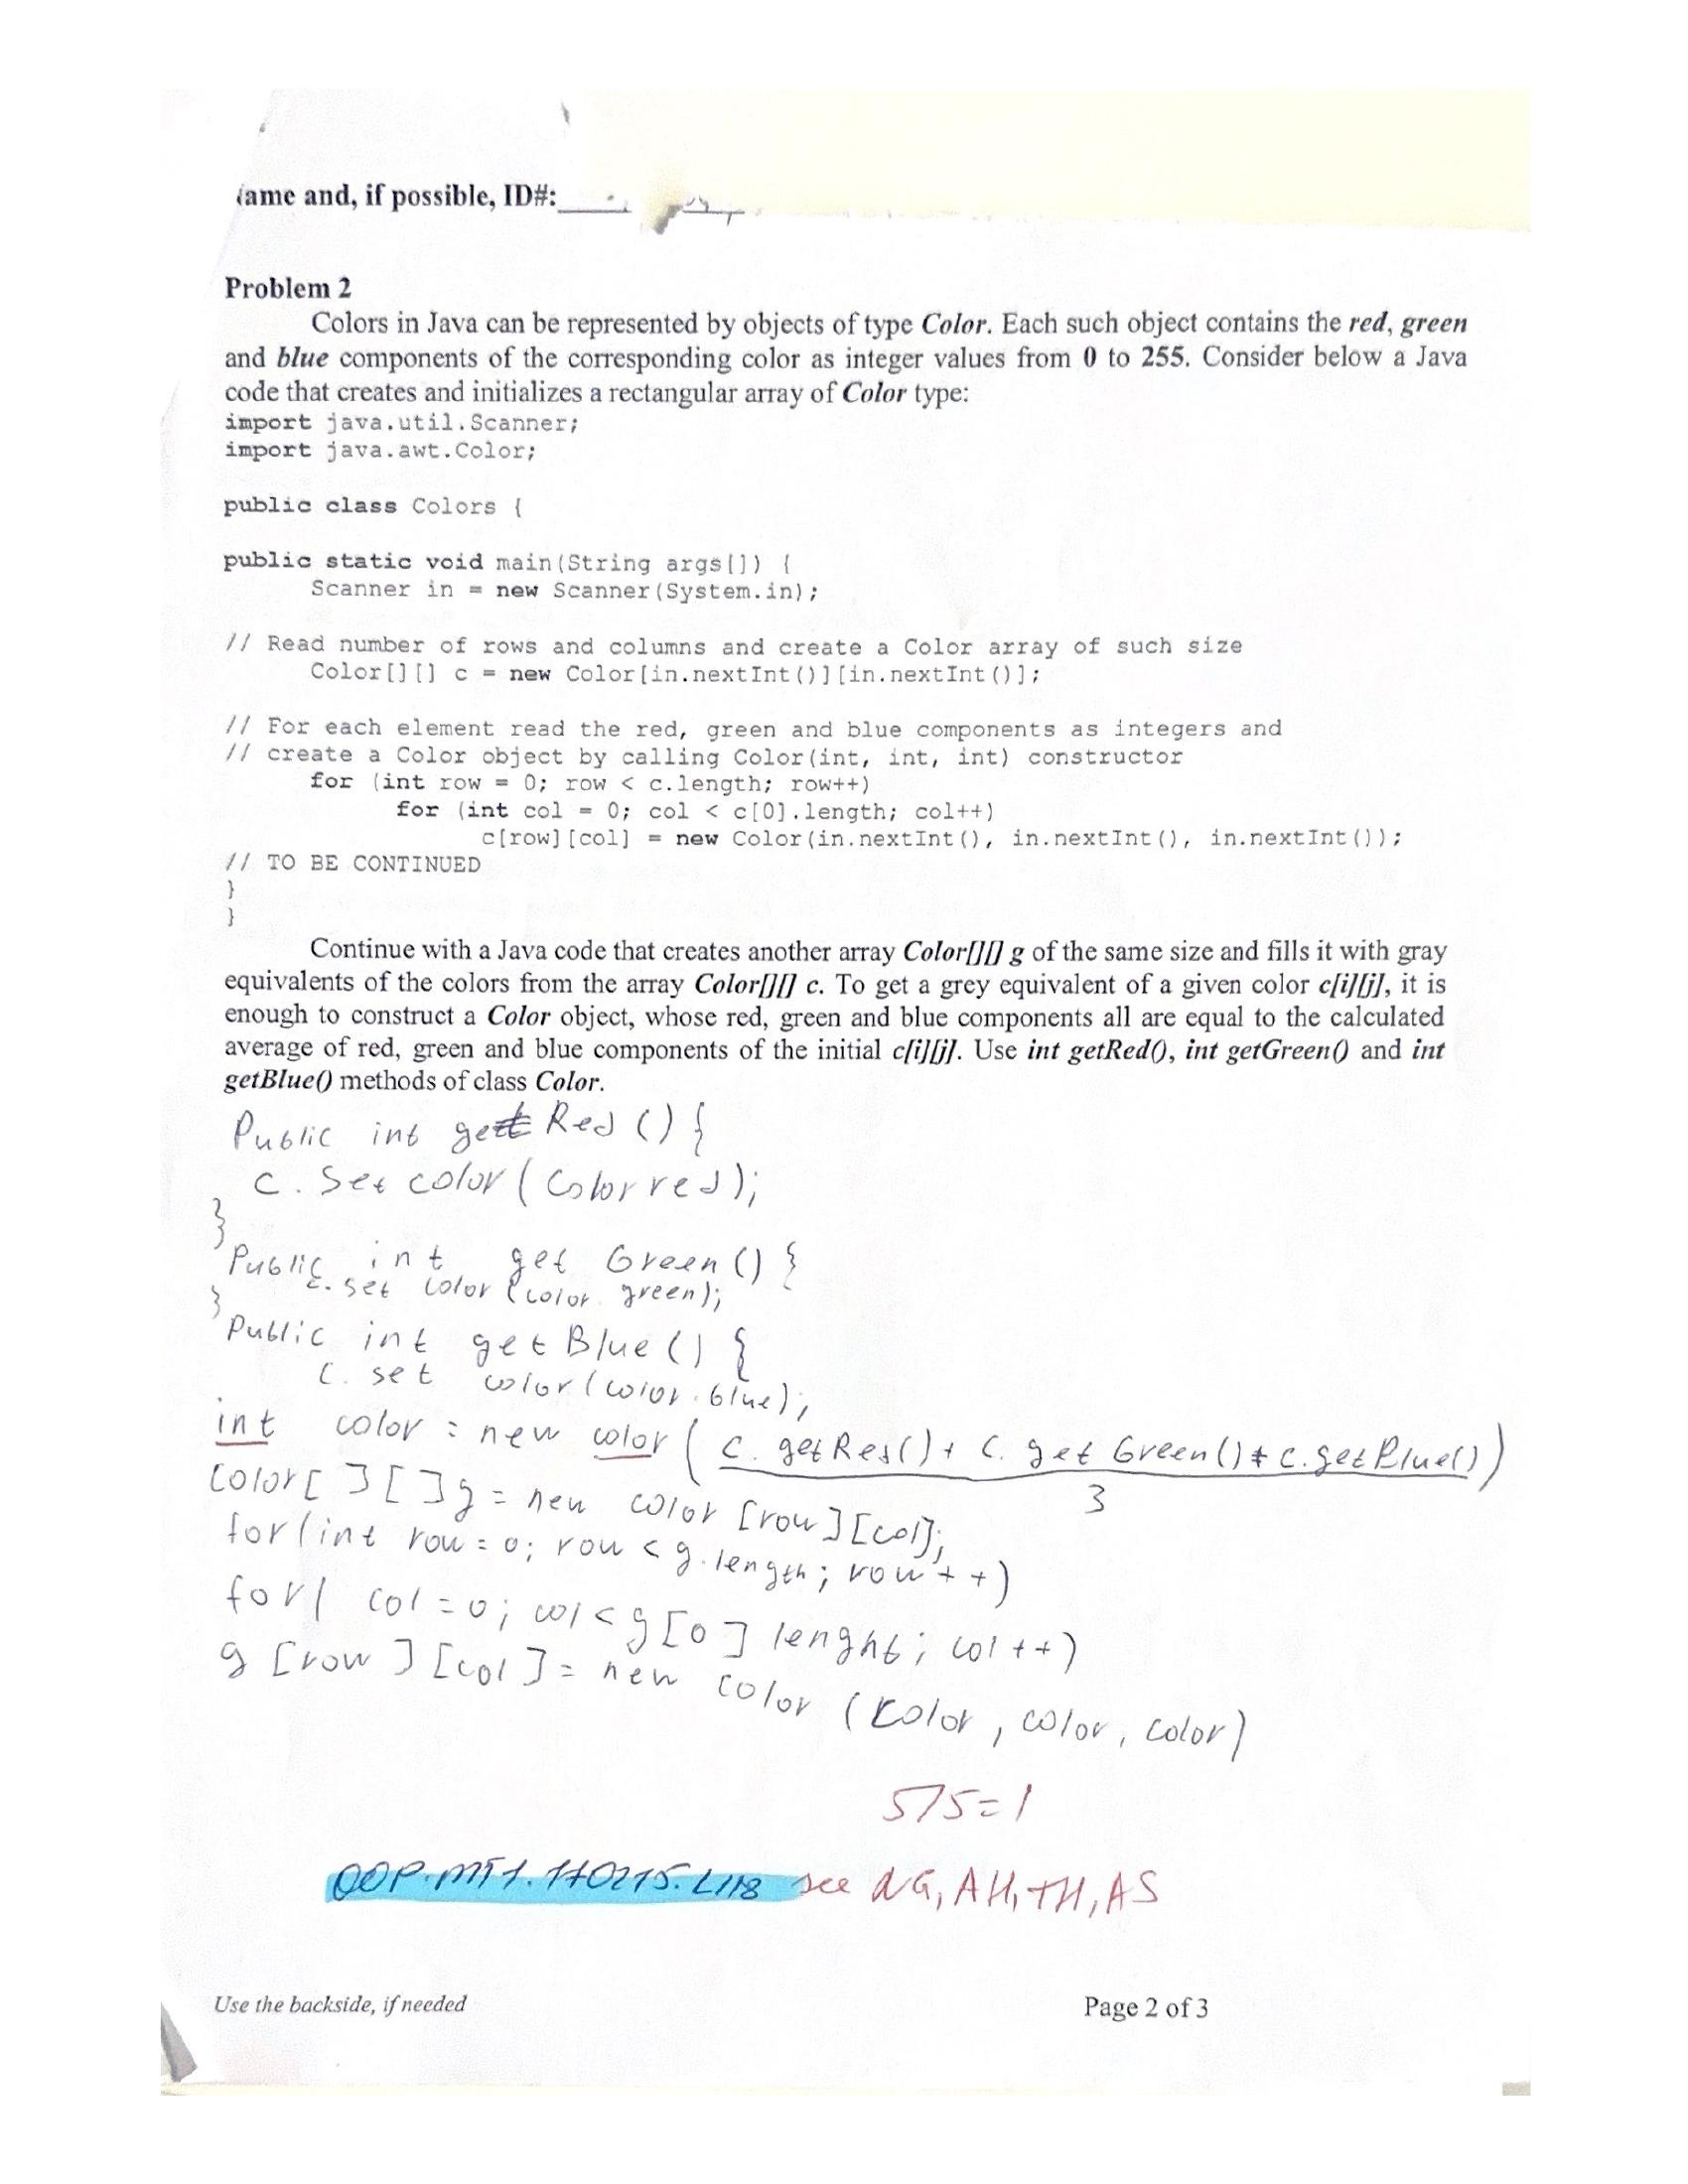 ame and, if possible, ID#:
Problem 2
Colors in Java can be represented by objects of type Color. Each such object contains the red, green
and blue components of the corresponding color as integer values from 0 to 255. Consider below a Java
code that creates and initializes a rectangular array of Color type:
import java.util.Scanner;
import java.awt.Color;
public class Colors {
public static void main(String args[]) {
Scanner in = new Scanner(System.in);
// Read number of rows and columns and create a Color array of such size
Color[][] c = new Color[in.nextInt()][in.nextInt()];
// For each element read the red, green and blue components as integers and
// create a Color object by calling Color(int, int, int) constructor
for (int row = 0; row < c.length; row++)
for (int col = 0; col < c[0].length; col++)
c[row][col] = new Color(in.nextInt(), in.nextInt(), in.nextInt());
// TO BE CONTINUED
}
}
Continue with a Java code that creates another array Color[][] g of the same size and fills it with gray
equivalents of the colors from the array Color[][] c. To get a grey equivalent of a given color c[i][j], it is
enough to construct a Color object, whose red, green and blue components all are equal to the calculated
average of red, green and blue components of the initial c[i][j]. Use int getRed(), int getGreen() and int
getBlue() methods of class Color.
Public int get Red () {
c. Set color (Color red);
}
Public int get Green () {
c. set color (color. green);
}
Public int get Blue () {
c. set color (color. blue);
int color = new color ( c. getRed() + c. get Green() + c. getBlue() )
3
color[ ][ ]g = new color [row][col];
for(int row = 0; row < g.length; row++)
for( col = 0; col < g[0] lenght; col++)
g [row][col] = new color (color, color, color)
5/5=1
OOP.MT1.170215.L118 see NG, AH, TH, AS
Use the backside, if needed
Page 2 of 3